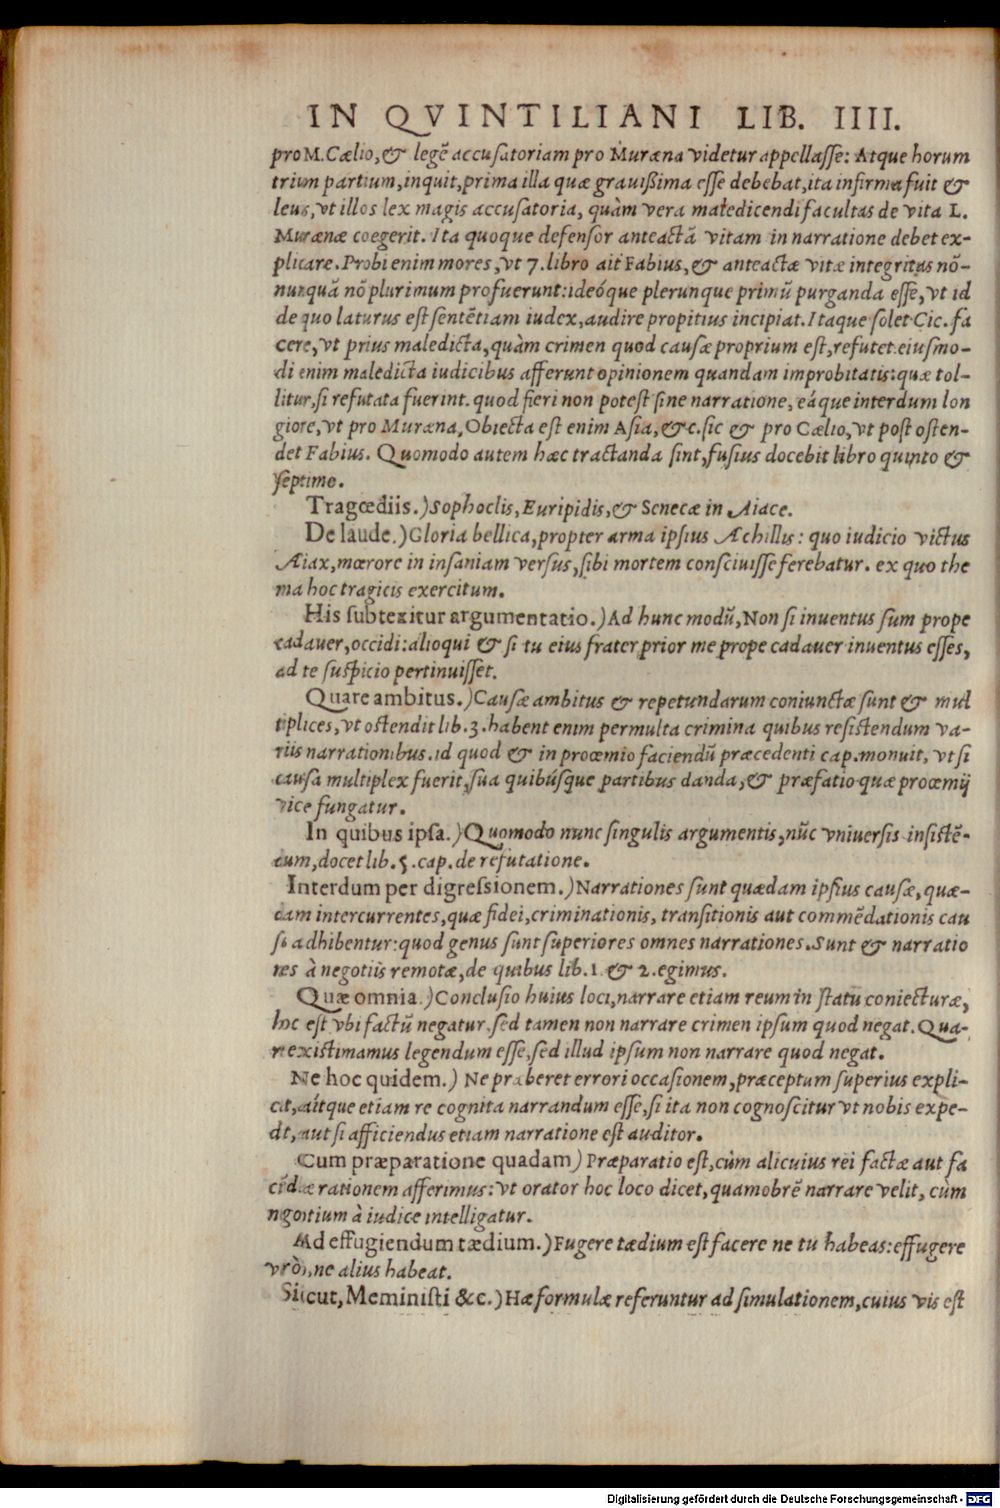 IN QVINTILIANI LIB. IIII.
pro M. Cælio, & legẽ accusatoriam pro Muræna videtur appellasse: Atque horum
trium partium, inquit, prima illa quæ grauißima esse debebat, ita infirma fuit &
leuis, vt illos lex magis accusatoria, quàm vera maledicendi facultas de vita L.
Murænæ coegerit. Ita quoque defensor anteactã vitam in narratione debet ex-
plicare. Probi enim mores, vt 7. libro ait Fabius, & anteactæ vitæ integritas nõ-
nunquã nõ plurimum profuerunt: ideóque plerunque primũ purganda esse, vt id
de quo laturus est sentẽtiam iudex, audire propitius incipiat. Itaque solet Cic. fa
cere, vt prius maledicta, quàm crimen quod causæ proprium est, refutet. eiusmo-
di enim maledicta iudicibus afferunt opinionem quandam improbitatis: quæ tol-
litur, si refutata fuerint. quod fieri non potest sine narratione, eáque interdum lon
giore, vt pro Muræna, Obiecta est enim Asia, &c. sic & pro Cælio, vt post osten-
det Fabius. Quomodo autem hæc tractanda sint, fusius docebit libro quinto &
septimo.
Tragœdiis.) Sophoclis, Euripidis, & Senecæ in Aiace.
De laude.) Gloria bellica, propter arma ipsius Achillis: quo iudicio victus
Aiax, mœrore in insaniam versus, sibi mortem consciuisse ferebatur. ex quo the
ma hoc tragicis exercitum.
His subtexitur argumentatio.) Ad hunc modũ, Non si inuentus sum prope
cadauer, occidi: alioqui & si tu eius frater prior me prope cadauer inuentus esses,
ad te suspicio pertinuisset.
Quare ambitus.) Causæ ambitus & repetundarum coniunctæ sunt & mul
tiplices, vt ostendit lib. 3. habent enim permulta crimina quibus resistendum va-
riis narrationibus. id quod & in proœmio faciendũ præcedenti cap. monuit, vt si
causa multiplex fuerit, sua quibúsque partibus danda, & præfatio quæ proœmij
vice fungatur.
In quibus ipsa.) Quomodo nunc singulis argumentis, nũc vniuersis insistẽ-
dum, docet lib. 5. cap. de refutatione.
Interdum per digressionem.) Narrationes sunt quædam ipsius causæ, quæ-
dam intercurrentes, quæ fidei, criminationis, transitionis aut commẽdationis cau
sa adhibentur: quod genus sunt superiores omnes narrationes. Sunt & narratio
nes à negotiis remotæ, de quibus lib. 1. & 2. egimus.
Quæ omnia.) Conclusio huius loci, narrare etiam reum in statu coniecturæ,
hoc est vbi factũ negatur, sed tamen non narrare crimen ipsum quod negat. Qua-
re existimamus legendum esse, sed illud ipsum non narrare quod negat.
Ne hoc quidem.) Ne præberet errori occasionem, præceptum superius expli-
cat, aítque etiam re cognita narrandum esse, si ita non cognoscitur vt nobis expe-
dit, aut si afficiendus etiam narratione est auditor.
Cum præparatione quadam) Præparatio est, cùm alicuius rei factæ aut fa
ciẽdæ rationem afferimus: vt orator hoc loco dicet, quamobrẽ narrare velit, cùm
negotium à iudice intelligatur.
Ad effugiendum tædium.) Fugere tædium est facere ne tu habeas: effugere
verò, ne alius habeat.
Sicut, Meministi &c.) Hæ formulæ referuntur ad simulationem, cuius vis est
Digitalisierung gefördert durch die Deutsche Forschungsgemeinschaft - DFG